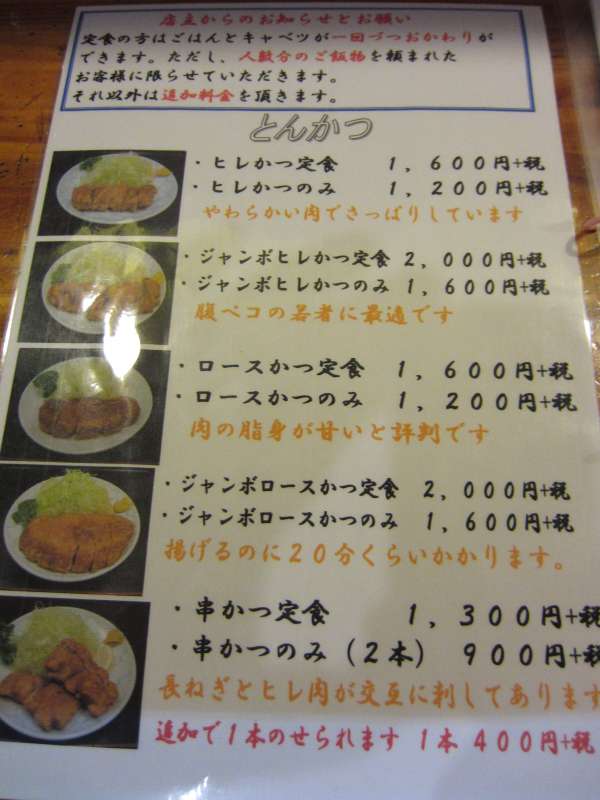 店主からのお知らせとお願い
定食の方はごはんとキャベツが一回づつおかわりが
できます。ただし、人数分のご飯物を頼まれた
お客様に限らせていただきます。
それ以外は追加料金を頂きます。
とんかつ
・ヒレかつ定食 1,600円+税
・ヒレかつのみ 1,200円+税
やわらかい肉でさっぱりしています
・ジャンボヒレかつ定食 2,000円+税
・ジャンボヒレかつのみ 1,600円+税
腹ペコの若者に最適です
・ロースかつ定食 1,600円+税
・ロースかつのみ 1,200円+税
肉の脂身が甘いと評判です
・ジャンボロースかつ定食 2,000円+税
・ジャンボロースかつのみ 1,600円+税
揚げるのに20分くらいかかります。
・串かつ定食 1,300円+税
・串かつのみ(2本) 900円+税
長ねぎとヒレ肉が交互に刺してあります
追加で1本のせられます 1本 400円+税